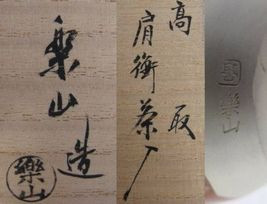 高取
肩衝茶入
楽山造
樂山
樂山